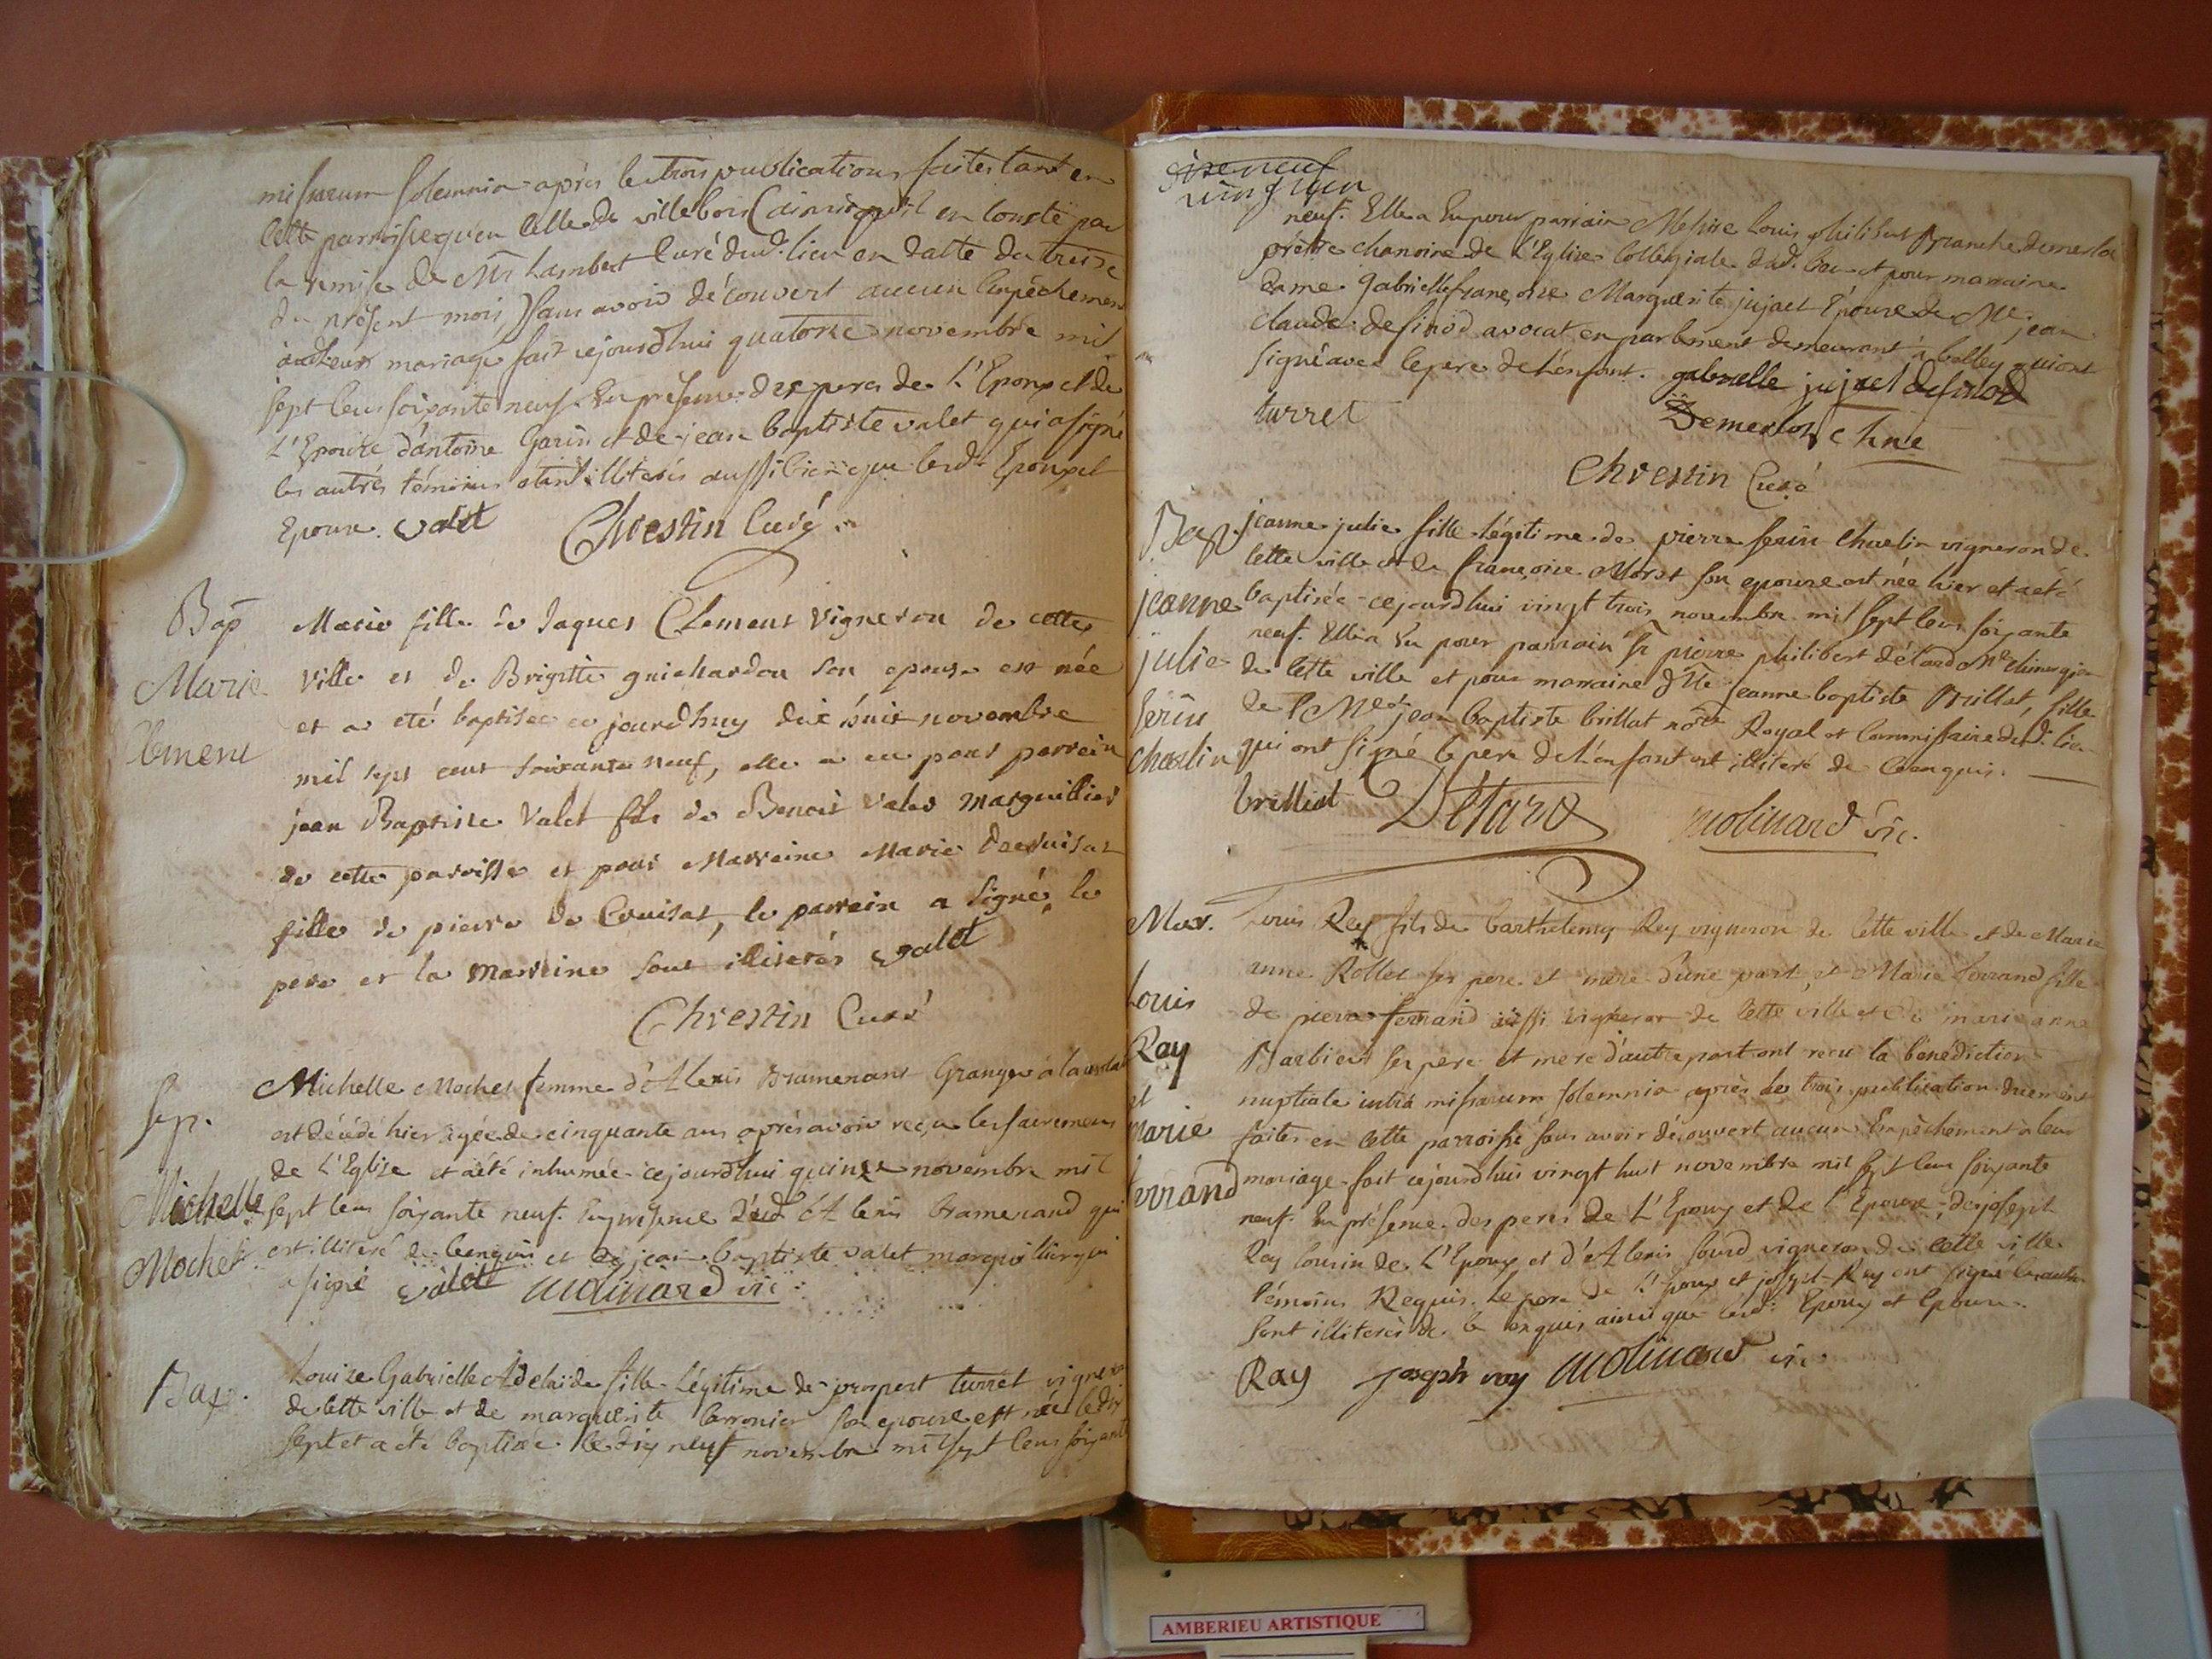 missarum solemnia après les trois publications faites tant en
cette paroisse qu'en celle de villebois (ainsi qu'il en conste par
la remise de Mr Lambert Curé dud. lieu en datte du treize
du présent mois) sans avoir découvert aucun Empêchement
aud. leur mariage fait cejourd'hui quatorze novembre mil
sept cens soixante neuf. En presence des peres de L'Epoux et de
L'Epouse d'antoine Garin et de jean baptiste valet qui a signé
les autres témoins etant illiterés aussi bien que lesd. Epoux et
Epouse. valet Chrestin Curé
Bap
Marie
Clement
Marie fille de Jaques Clement vigneron de cette
ville et de Brigitte guichardon son epouse est née
et a eté baptisée ce jourdhuy dix huit novembre
mil sept cent soixante neuf, elle a eu pour parrein
jean Baptiste Valet fils de Benoit valet marguillier
de cette paroisse et pour Marreine Marie decruisat
fille de pierre de Cruisat, le parrein a signé, le
pere et la marreine sont illiterés valet
Chrestin Curé
Sep.
Michelle
Mochet
Michelle Mochet femme d'Alexis Bramerand Granger à
est décédé hier agée de cinquante ans après avoir reçu les sacremens
de L'Eglise et a été inhumée cejourd'hui quinze novembre mil
sept cens soixante neuf. En presence dud. Alexis bramerand qui
est illiteré de ce enquis et de jean baptiste valet marguillier qui
a signé valet Molinard vic
Bap.
Louize Gabrielle Adelaïde fille légitime de prospert turret vigneron
de cette ville et de marguerite son epouse est née le dix
sept et a eté baptisée le dix neuf novembre mil sept cens soixante
vingt un
neuf. Elle a Eu pour parrain Messire Louis philibert Branche demerloz
prêtre chanoine de L'Eglise Collégiale dud. lieu et pour marraine
dame gabrielle françoise Marguerite jujact Epouse de Me jean
claude desinod avocat en parlement demeurant à belley qui ont
signé avec le pere de L'enfant. gabrielle jujact desinod
turret Demerloz chne
Chrestin Curé
Bap.
jeanne
julie
serin
chaelin
jeanne julie fille légitime de pierre serin chaelin vigneron de
cette ville et de françoise Moret son epouse est née hier et a eté
baptisée cejourdhui vingt trois novembre mil sept cens soixante
neuf. Elle a Eu pour parrain Sr pierre philibert détard Me chirurgien
de cette ville et pour marraine dlle jeanne baptiste Brillat, fille
de Me jean baptiste brillat nore Royal et Commissaire dud. lieu
qui ont signé le pere de L'enfant est illiteré de ce enquis.
brillat Détard molinard vic.
Mar.
Louis
Ray
et
Marie
ferrand
Louis Rey fils de barthelemy Rey vigneron de cette ville et de Marie
anne Rollet ses pere et mere d'une part, et Marie ferrand fille
de pierre ferrand aussi vigneron de cette ville et de marie anne
Barbier ses pere et mere d'autre part ont recu la bénédiction
nuptiale intra missarum solemnia après les trois publication duement
faites en cette parroisse sans avoir découvert aucun Empêchement à leur
mariage fait cejourdhui vingt huit novembre mil sept cens soixante
neuf. En présence des peres de L'Epoux et de l'Epouse, de joseph
Ray cousin de L'Epoux et d'Alexis sourd vigneron de cette ville
témoins Requis. Le pere de l'Epoux et joseph Ray ont signé les autres
sont illiterés de ce enquis ainsi que lesd. Epoux et Epouse.
Ray joseph ray Molinard vic
AMBERIEU ARTISTIQUE